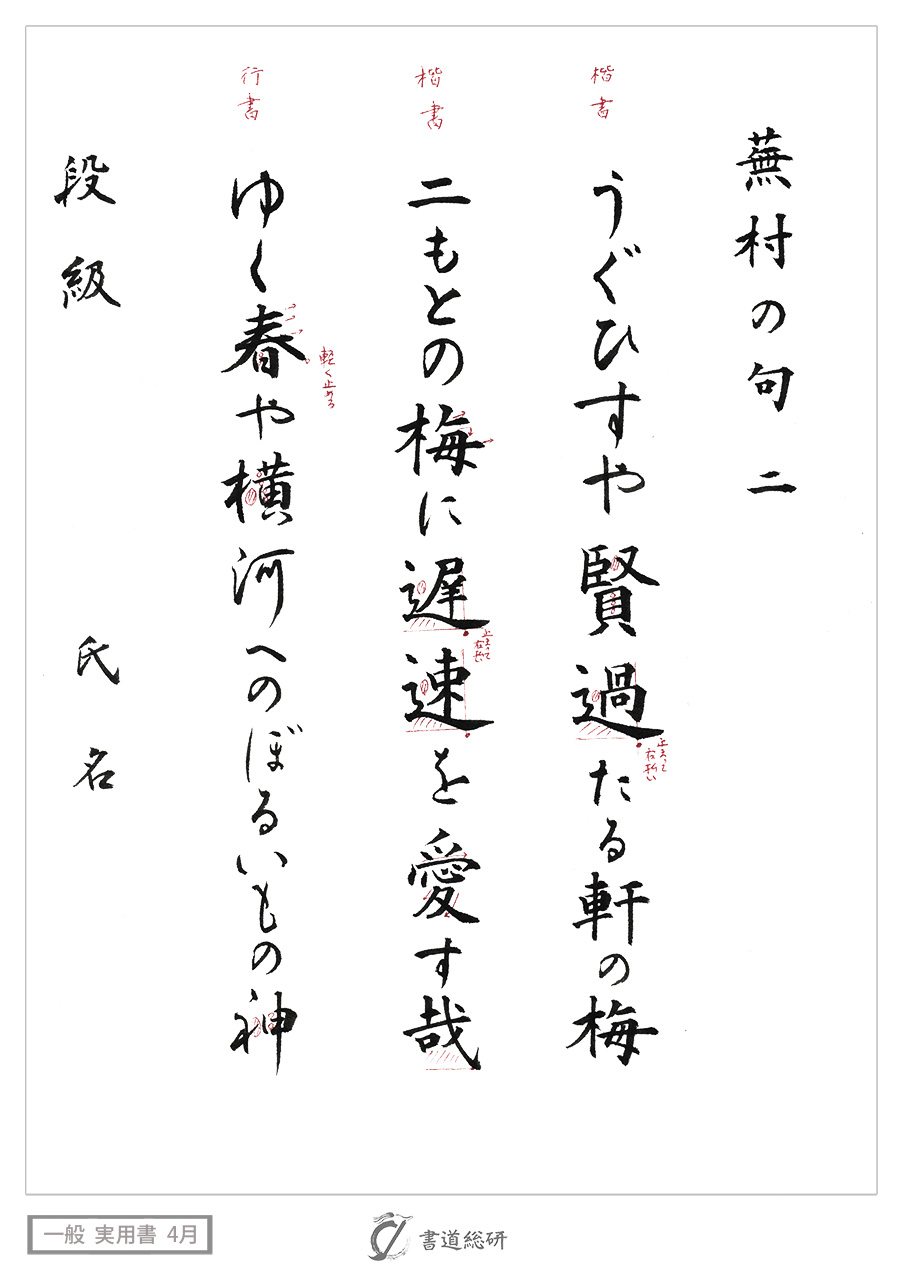 蕪村の句 二
楷書
うぐひすや賢過たる軒の梅
止まって
右払い
楷書
二もとの梅に遅速を愛す哉
止まって
右払い
行書
ゆく春や横河へのぼるいもの神
軽く止める
段級 氏名
一般 実用書 4月
書道総研